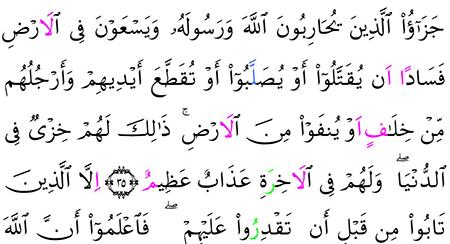 جَزَٰٓؤُا۟ اُ۬لذِينَ يُحَارِبُونَ اَ۬للَّهَ وَرَسُولَهُۥ وَيَسْعَوْنَ فِے اِ۬لَارْضِ
فَسَاداً اَنْ يُّقَتَّلُوٓا۟ أَوْ يُصَلَّبُوٓا۟ أَوْ تُقَطَّعَ أَيْدِيهِمْ وَأَرْجُلُهُم
مِّنْ خِلَٰفٍ اَوْ يُنفَوْا۟ مِنَ اَ۬لَارْضِ ذَٰلِكَ لَهُمْ خِزْيٌ فِے
اِ۬لدُّنْيَا وَلَهُمْ فِے اِ۬لَاخِرَةِ عَذَابٌ عَظِيمٌ ۝٣٥ اِلَّا اَ۬لذِينَ
تَابُوا۟ مِن قَبْلِ أَن تَقْدِرُوا۟ عَلَيْهِمْ فَاعْلَمُوٓا۟ أَنَّ اَ۬للَّهَ